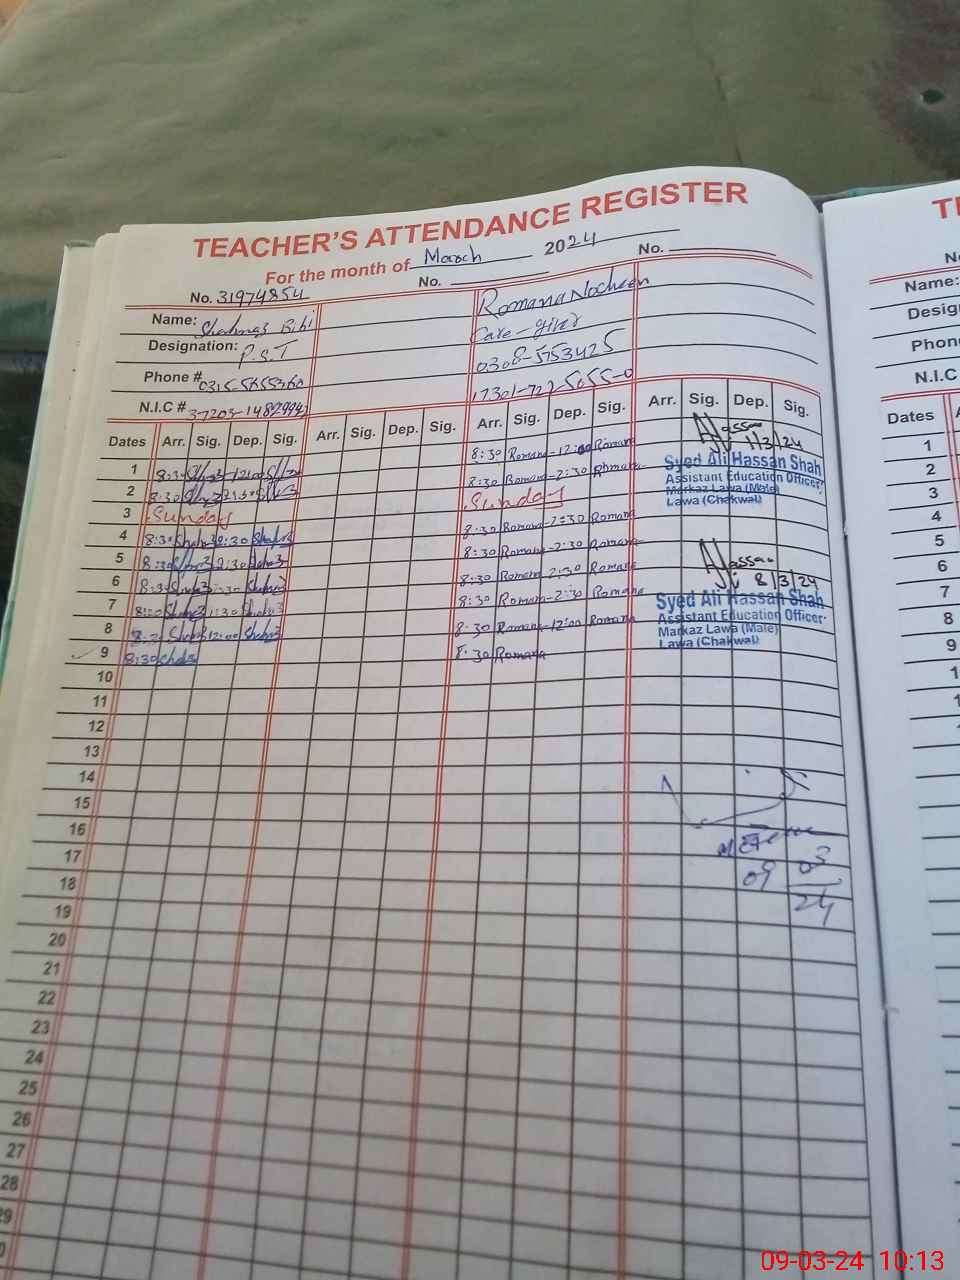 TEACHER'S ATTENDANCE REGISTER
For the month of March 2024
No. 31974854 No. No.
Name: Shahnaz Bibi Romana Nosheen
Designation: P.S.T Care-giver
Phone # 0308-5753425
N.I.C #
Dates Arr. Sig. Dep. Sig. Arr. Sig. Dep. Sig. Arr. Sig. Dep. Sig. Arr. Sig. Dep. Sig.
1 8:30 12:00 8:30 Romana 12:00 Romana Hassan 1/3/24
2 8:30 8:30 Romana 2:30 Romana
Syed Ali Hassan Shah
Assistant Education Officer
Markaz Lawa (Male)
Lawa (Chakwal)
3 Sunday Sunday
4 8:30 2:30 8:30 Romana 2:30 Romana
5 8:30 2:30 8:30 Romana 2:30 Romana
6 8:30 8:30 Romana 2:30 Romana Hassan 8/3/24
7 8:30 Romana 2:30 Romana
Syed Ali Hassan Shah
Assistant Education Officer
Markaz Lawa (Male)
Lawa (Chakwal)
8 12:00 8:30 Romana 12:00 Romana
9 8:30 8:30 Romana
10
11
12
13
14
15
16
17
18
09 03
24
19
20
21
22
23
24
25
26
27
28
29
Name:
Phon
N.I.C
Dates
1
2
3
4
5
6
7
8
9
09-03-24 10:13